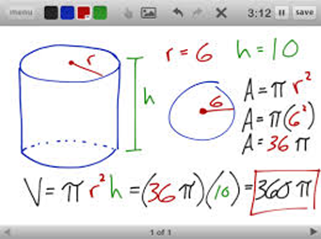 menu 3:12 save
r = 6 h = 10
r
h
6
A = π r²
A = π(6²)
A = 36 π
V = π r² h = (36 π)(10) = 360 π
1 of 1